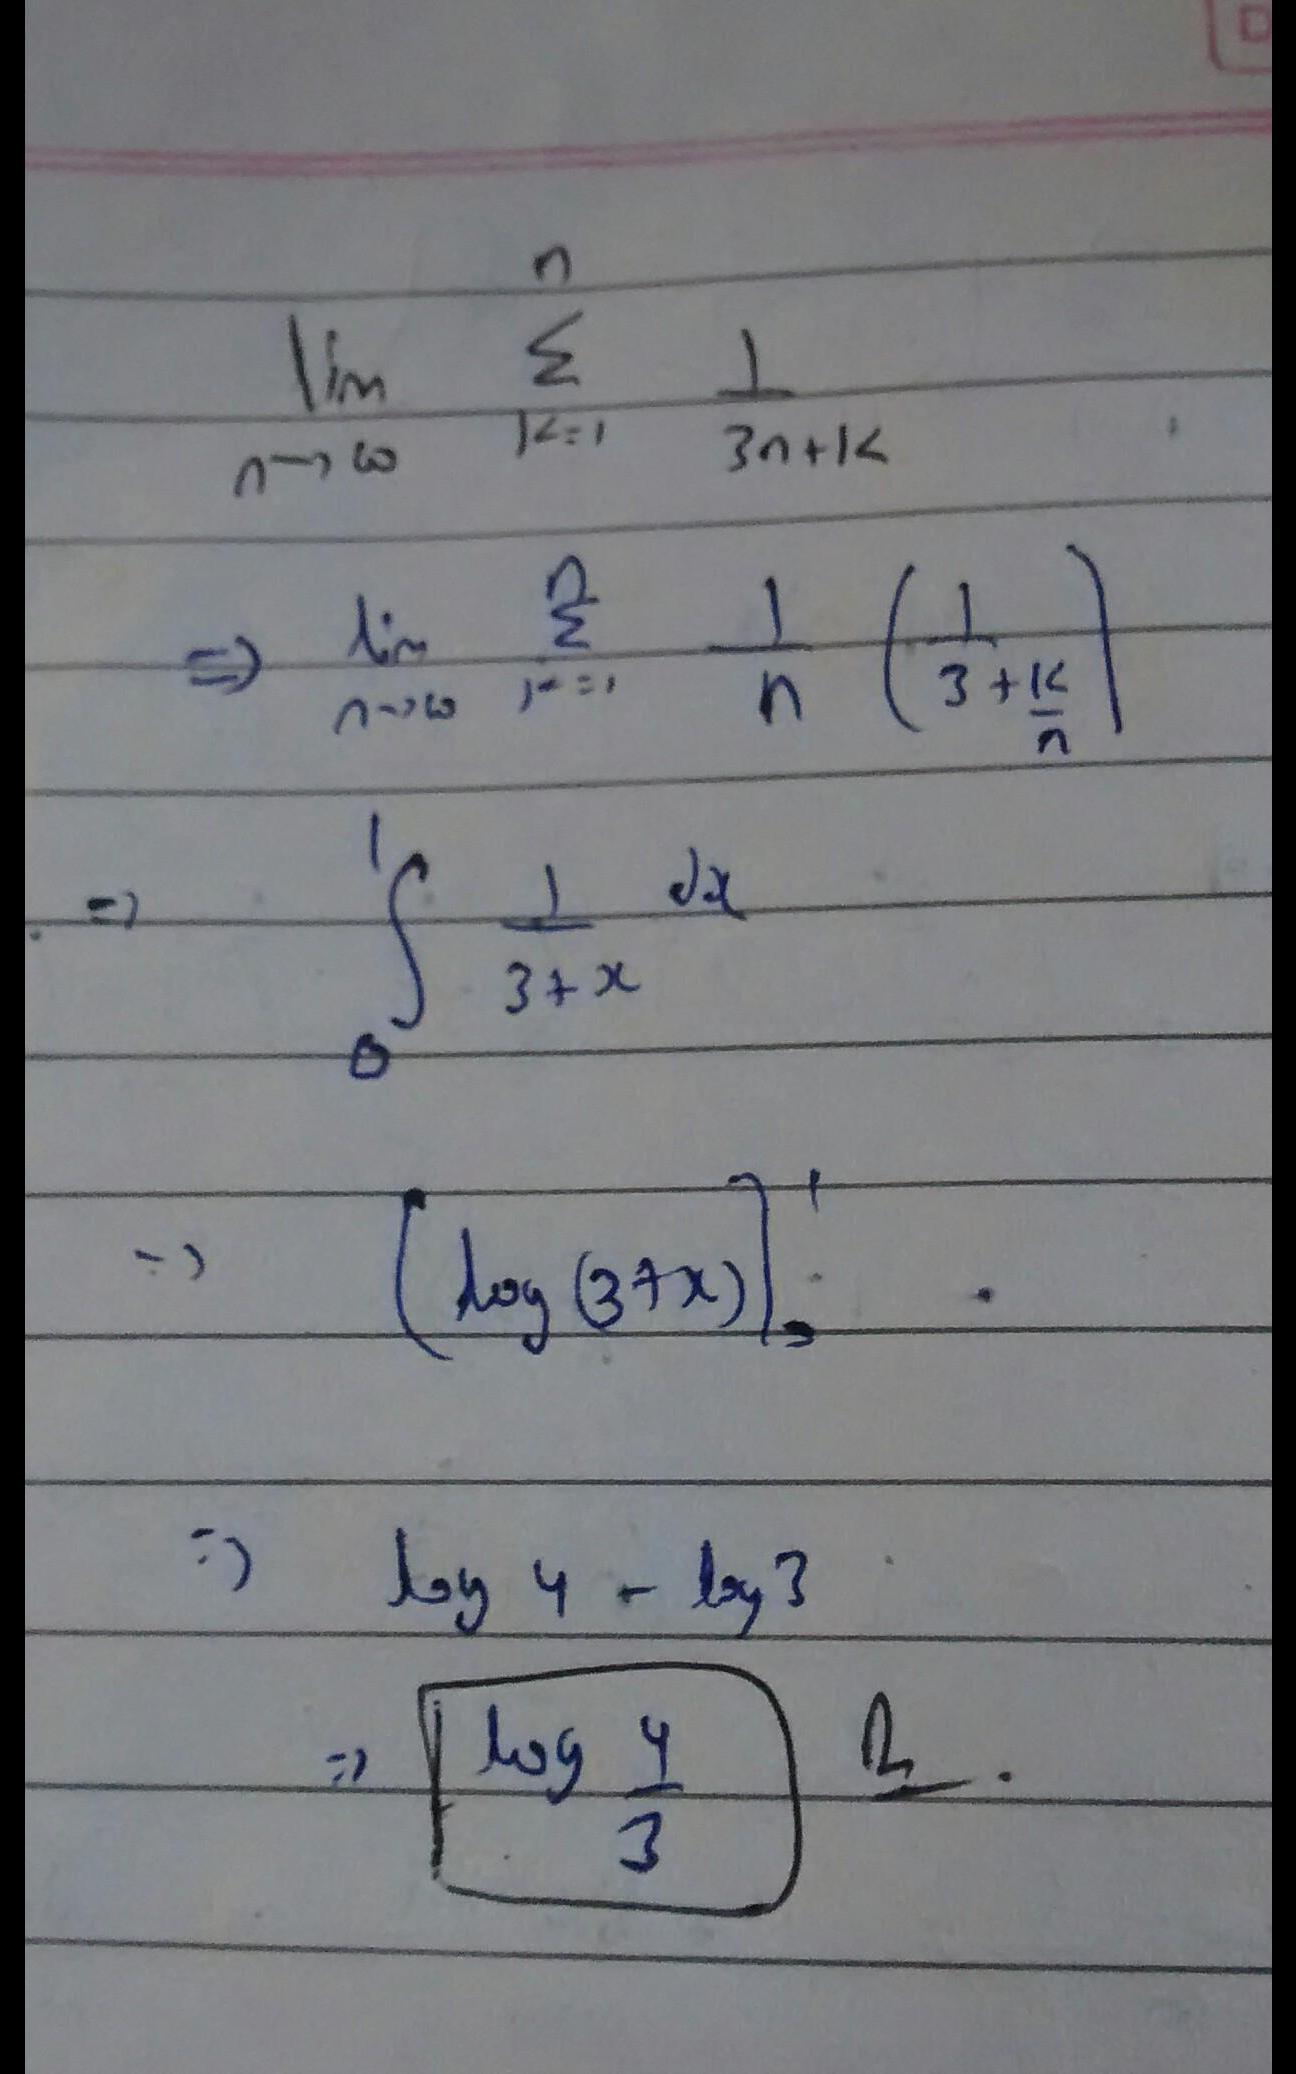 D
lim n→∞ Σ k=1 n 1/(3n+k)
⇒ lim n→∞ Σ k=1 n 1/n (1/(3+k/n))
⇒ ∫ 0 1 1/(3+x) dx
⇒ [log(3+x)] 0 1
⇒ log 4 - log 3
⇒ log 4/3